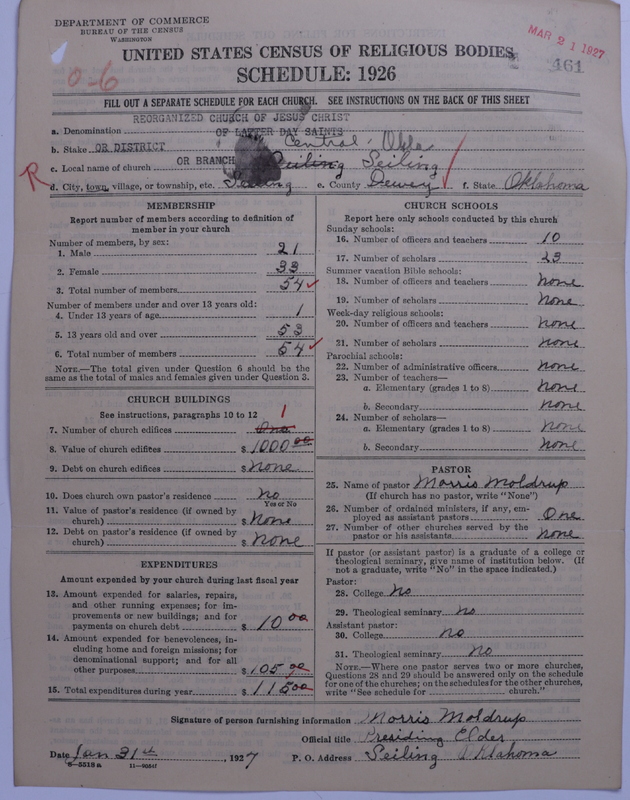 DEPARTMENT OF COMMERCE
BUREAU OF THE CENSUS
WASHINGTON
MAR 21 1927
461
0-6
UNITED STATES CENSUS OF RELIGIOUS BODIES
SCHEDULE: 1926
FILL OUT A SEPARATE SCHEDULE FOR EACH CHURCH. SEE INSTRUCTIONS ON THE BACK OF THIS SHEET
REORGANIZED CHURCH OF JESUS CHRIST
a. Denomination OF LATTER DAY SAINTS
b. Stake OR DISTRICT Central Okla
c. Local name of church OR BRANCH Seiling Seiling
R d. City, town, village, or township, etc. Seiling e. County Dewey f. State Oklahoma
MEMBERSHIP
Report number of members according to definition of
member in your church
Number of members, by sex:
1. Male 21
2. Female 33
3. Total number of members 54
Number of members under and over 13 years old:
4. Under 13 years of age 1
5. 13 years old and over 53
6. Total number of members 54
NOTE.—The total given under Question 6 should be
same as the total of males and females given under Question 3.
CHURCH BUILDINGS
See instructions, paragraphs 10 to 12
1
7. Number of church edifices One
8. Value of church edifices $ 1000 00
9. Debt on church edifices $ None
10. Does church own pastor's residence No
Yes or No
11. Value of pastor's residence (if owned by
church) $ None
12. Debt on pastor's residence (if owned by
church) $ None
EXPENDITURES
Amount expended by your church during last fiscal year
13. Amount expended for salaries, repairs,
and other running expenses; for im-
provements or new buildings; and for
payments on church debt $ 10 00
14. Amount expended for benevolences, in-
cluding home and foreign missions; for
denominational support; and for all
other purposes $ 105 00
15. Total expenditures during year $ 115 00
CHURCH SCHOOLS
Report here only schools conducted by this church
Sunday schools:
16. Number of officers and teachers 10
17. Number of scholars 23
Summer vacation Bible schools:
18. Number of officers and teachers None
19. Number of scholars None
Week-day religious schools:
20. Number of officers and teachers None
21. Number of scholars None
Parochial schools:
22. Number of administrative officers None
23. Number of teachers—
a. Elementary (grades 1 to 8) None
b. Secondary None
24. Number of scholars—
a. Elementary (grades 1 to 8) None
b. Secondary None
PASTOR
25. Name of pastor Morris Moldrup
(If church has no pastor, write "None")
26. Number of ordained ministers, if any, em-
ployed as assistant pastors One
27. Number of other churches served by the
pastor or his assistants None
If pastor (or assistant pastor) is a graduate of a college or
theological seminary, give name of institution below. (If
not a graduate, write "No" in the space indicated.)
Pastor:
28. College No
29. Theological seminary No
Assistant pastor:
30. College No
31. Theological seminary No
NOTE.—Where one pastor serves two or more churches,
Questions 28 and 29 should be answered only on the schedule
for one of the churches; on the schedules for the other churches,
write "See schedule for church."
Signature of person furnishing information Morris Moldrup
Official title Presiding Elder
Date Jan 31st, 1927 P. O. Address Seiling Oklahoma
8-5518 a 11-9054f